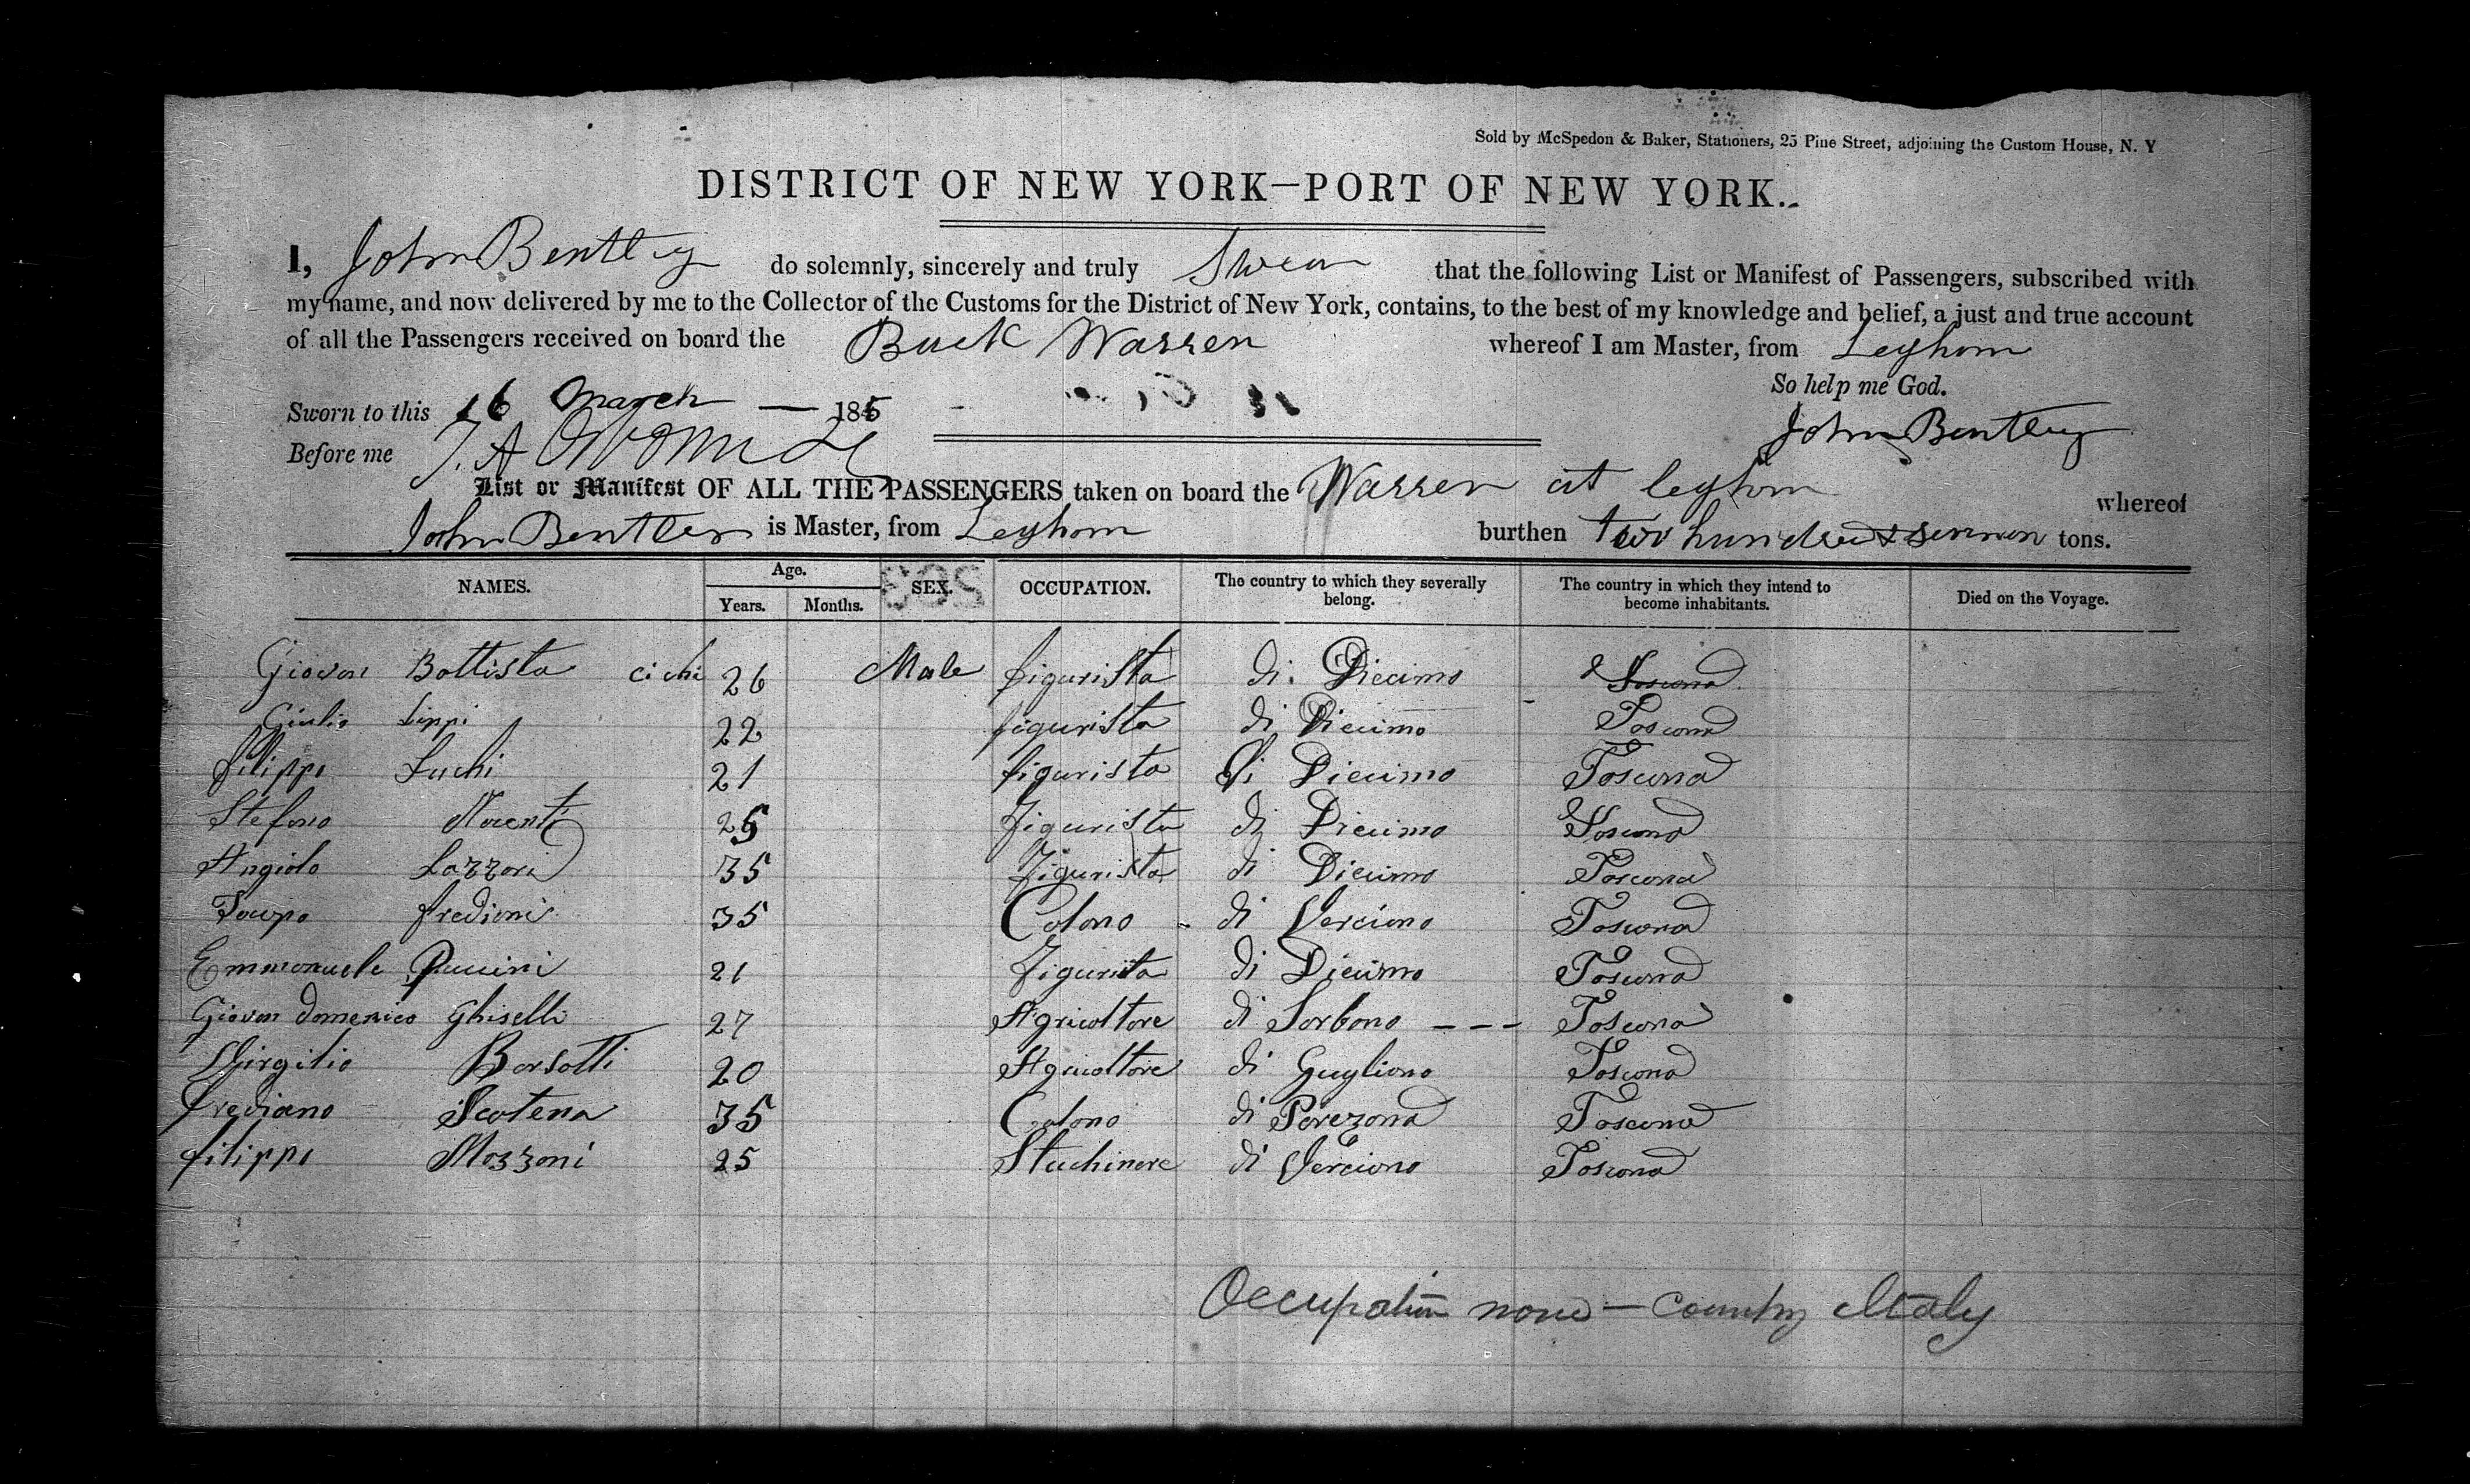 Sold by McSpedon & Baker, Stationers, 25 Pine Street, adjoining the Custom House, N. Y
DISTRICT OF NEW YORK—PORT OF NEW YORK.
I, John Bentley do solemnly, sincerely and truly Swear that the following List or Manifest of Passengers, subscribed with
my name, and now delivered by me to the Collector of the Customs for the District of New York, contains, to the best of my knowledge and belief, a just and true account
of all the Passengers received on board the Warren whereof I am Master, from Leghorn
So help me God.
Sworn to this 16 March 185
John Bentley
Before me
List or Manifest OF ALL THE PASSENGERS taken on board the Warren at leghorn whereof
John Bentley is Master, from Leghorn burthen two hundred & tons.
NAMES. Age. SEX. OCCUPATION. The country to which they severally belong. The country in which they intend to become inhabitants. Died on the Voyage.
Years. Months.
Giovan Battista cichi 26 Male figurista di Diecimo Toscana
Giulio Lippi 22 figurista di Diecimo Toscana
filippo Luchi 21 figurista di Diecimo Toscana
Stefano 25 Figurista di Diecimo Toscana
Angiolo Lazzari 35 Figurista di Diecimo Toscana
frediani 35 Colono di Verciano Toscana
Emmanuele Puccini 21 Figurista di Diecimo Toscana
Giovan domenico ghiselli 27 Agricoltore di Sorbano Toscana
Virgilio Barsotti 20 Agricoltore di Gugliano Toscana
frediano Scatena 35 Colono di Toscana
filippo Mazzoni 25 di Verciano Toscana
Occupation none — Country Italy